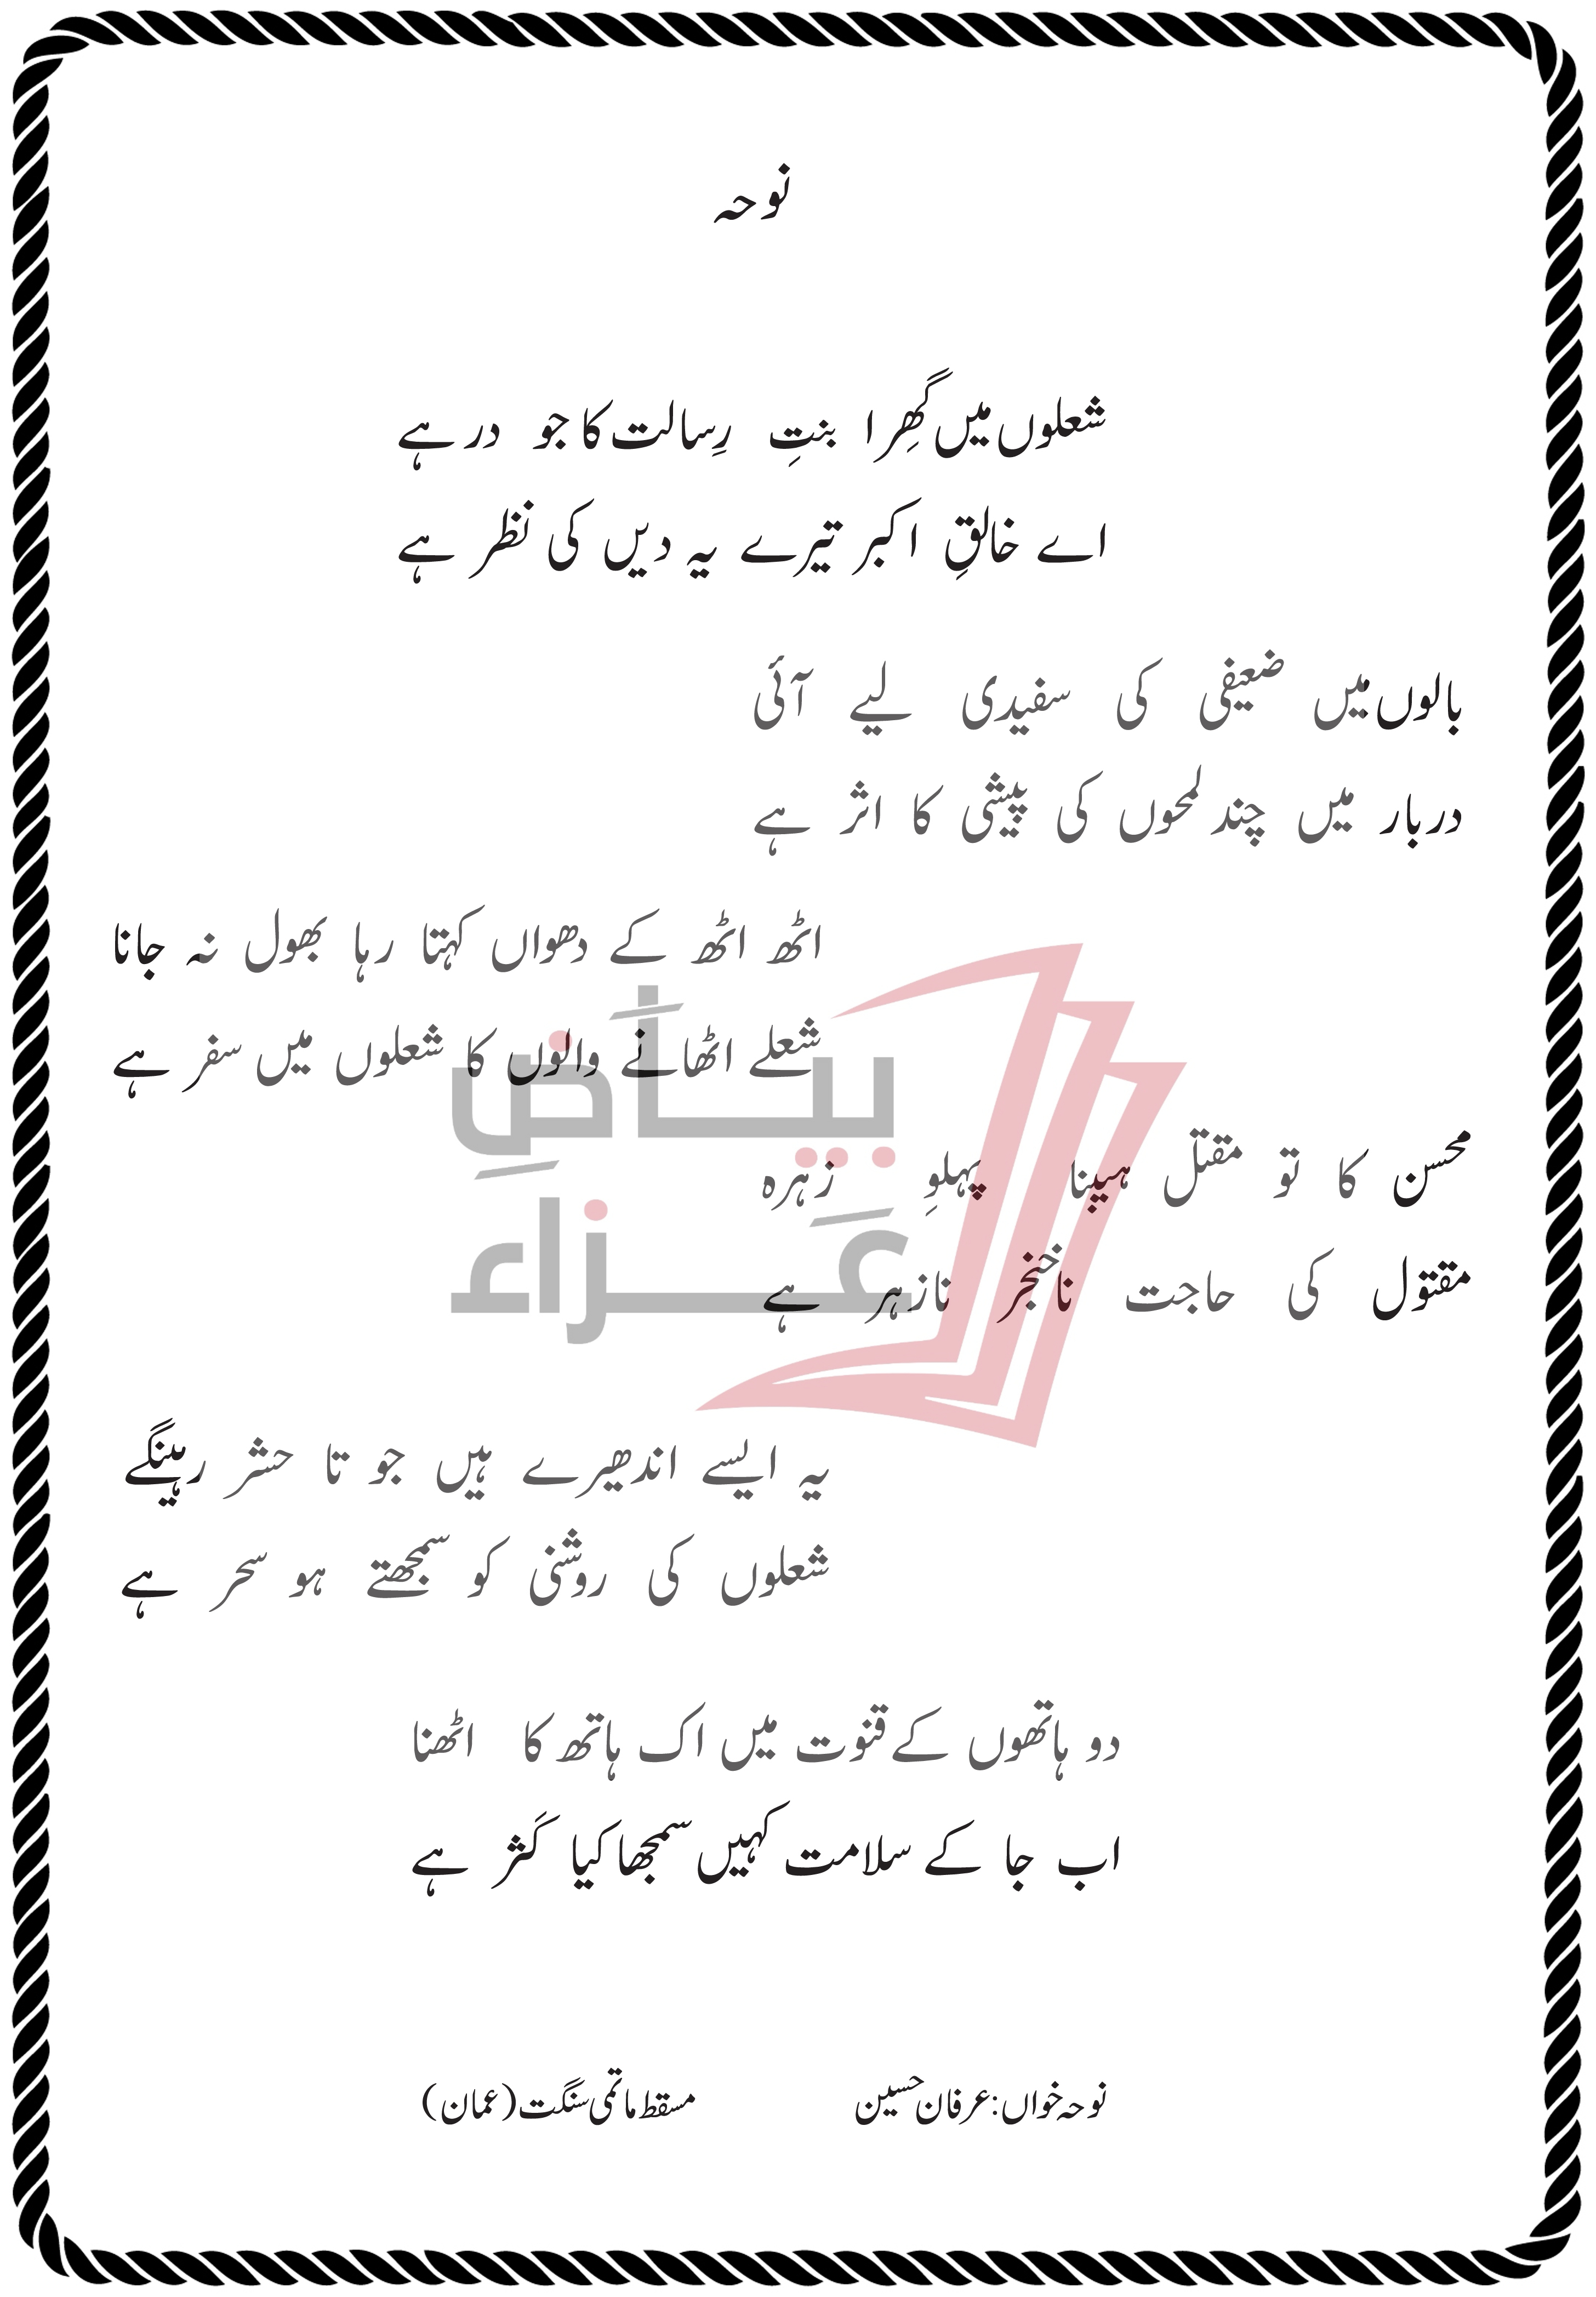 نوحہ
شعلوں میں گِھرا بنتِ رِسالت کا جو در ہے
اے خالقِ اکبر تیرے یہ دیں کی نظر ہے
بالوں میں ضعیفی کی سفیدی لیے آئی
دربار میں چند لمحوں کی پیشی کا اثر ہے
اٹھ اٹھ کے دھواں کہتا رہا بھول نہ جانا
شعلے اٹھانے والوں کا شعلوں میں سفر ہے
محسن کا تو مقتل پہلوِ زہرہ
مقتول کی حاجت ناخنجر نازہر ہے
یہ ایسے اندھیرے ہیں جو تا حشر رہینگے
شعلوں کی روشنی کو سمجھتے ہو سحر ہے
دو ہاتھوں کے قنوت میں اک ہاتھ کا اٹھنا
اب جا کے سلامت کہیں سمجھا کیا گثر ہے
نوحہ خواں: عرفان حسین مسقط ماتمی سنگت (عمان)
بیاضِ
عَزاء